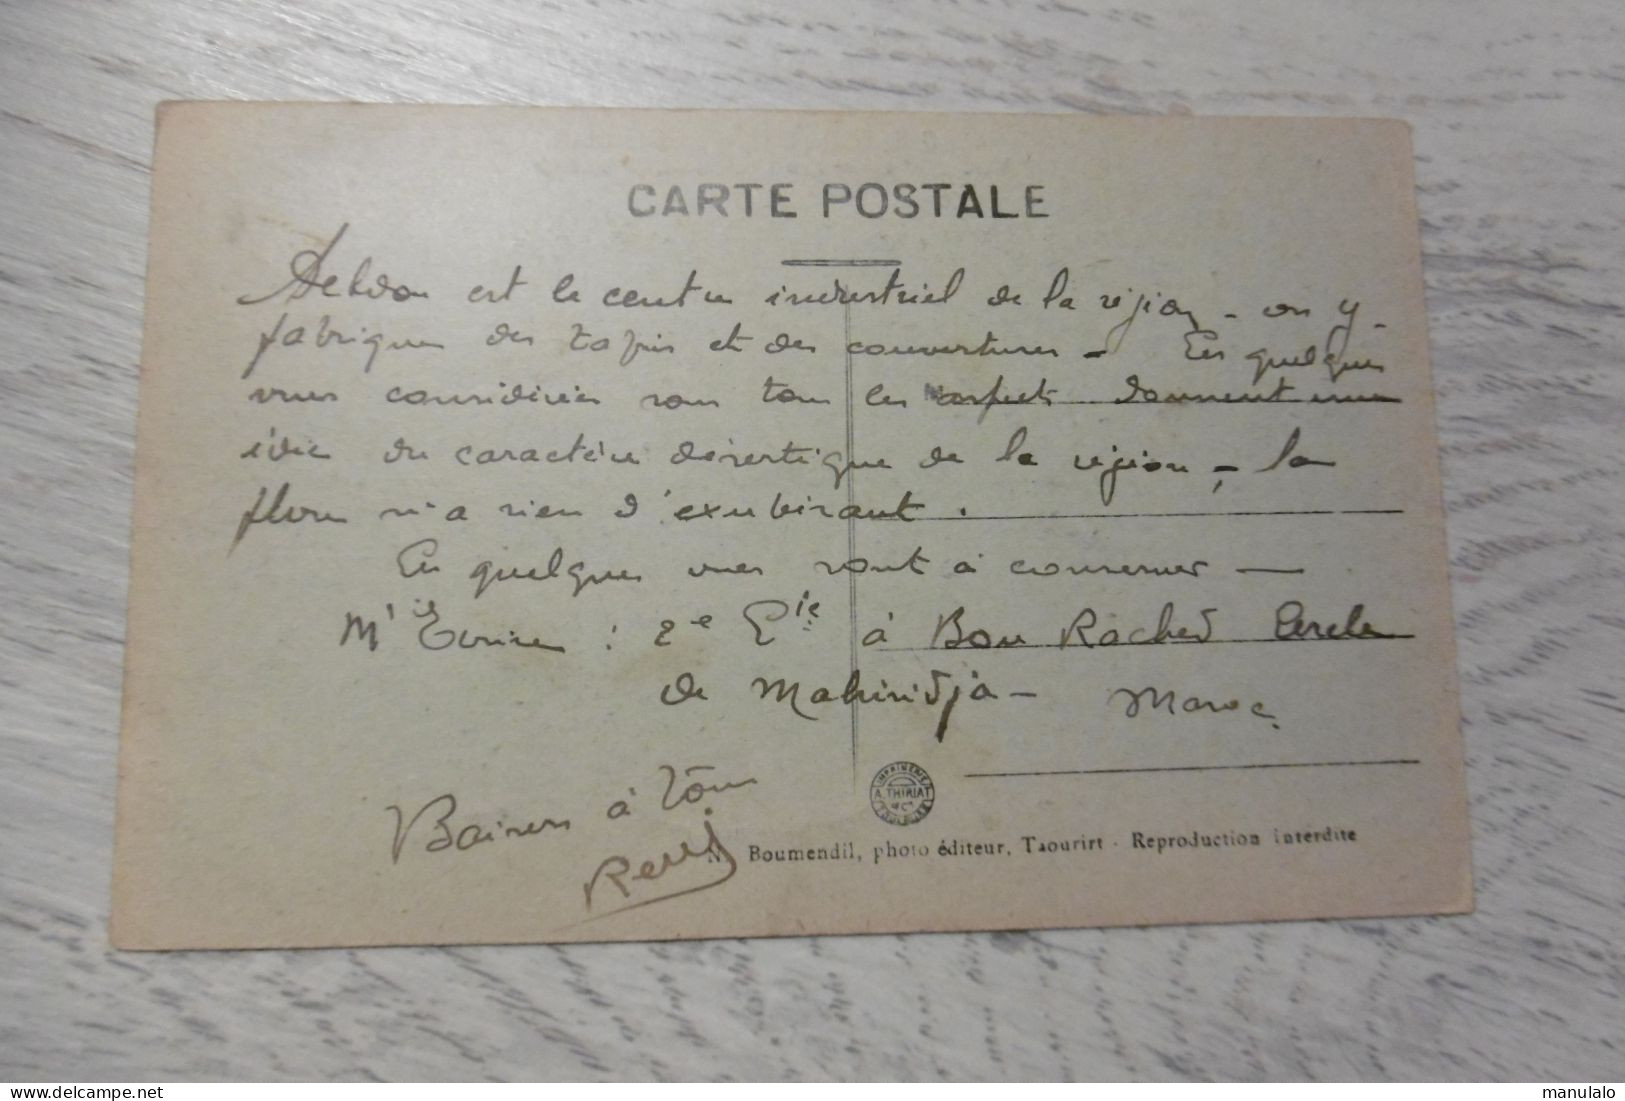 CARTE POSTALE
Debdou est le centre industriel de la région - on y
fabrique des tapis et des couvertures - Ces quelques
vues considérées sous tous les aspects donnent une
idée du caractère désertique de la région, - la
flore n'a rien d'exubérant.
Ces quelques vues sont à conserver —
M'Ecrire : 2e Cie à Bou Rached Cercle
de Mahiridja - Maroc.
Baisers à tous
René
IMPRIMERIE
A. THIRIAT
& Cie
TOULOUSE
N. Boumendil, photo éditeur, Taourirt - Reproduction interdite
www.delcampe.net
manulalo